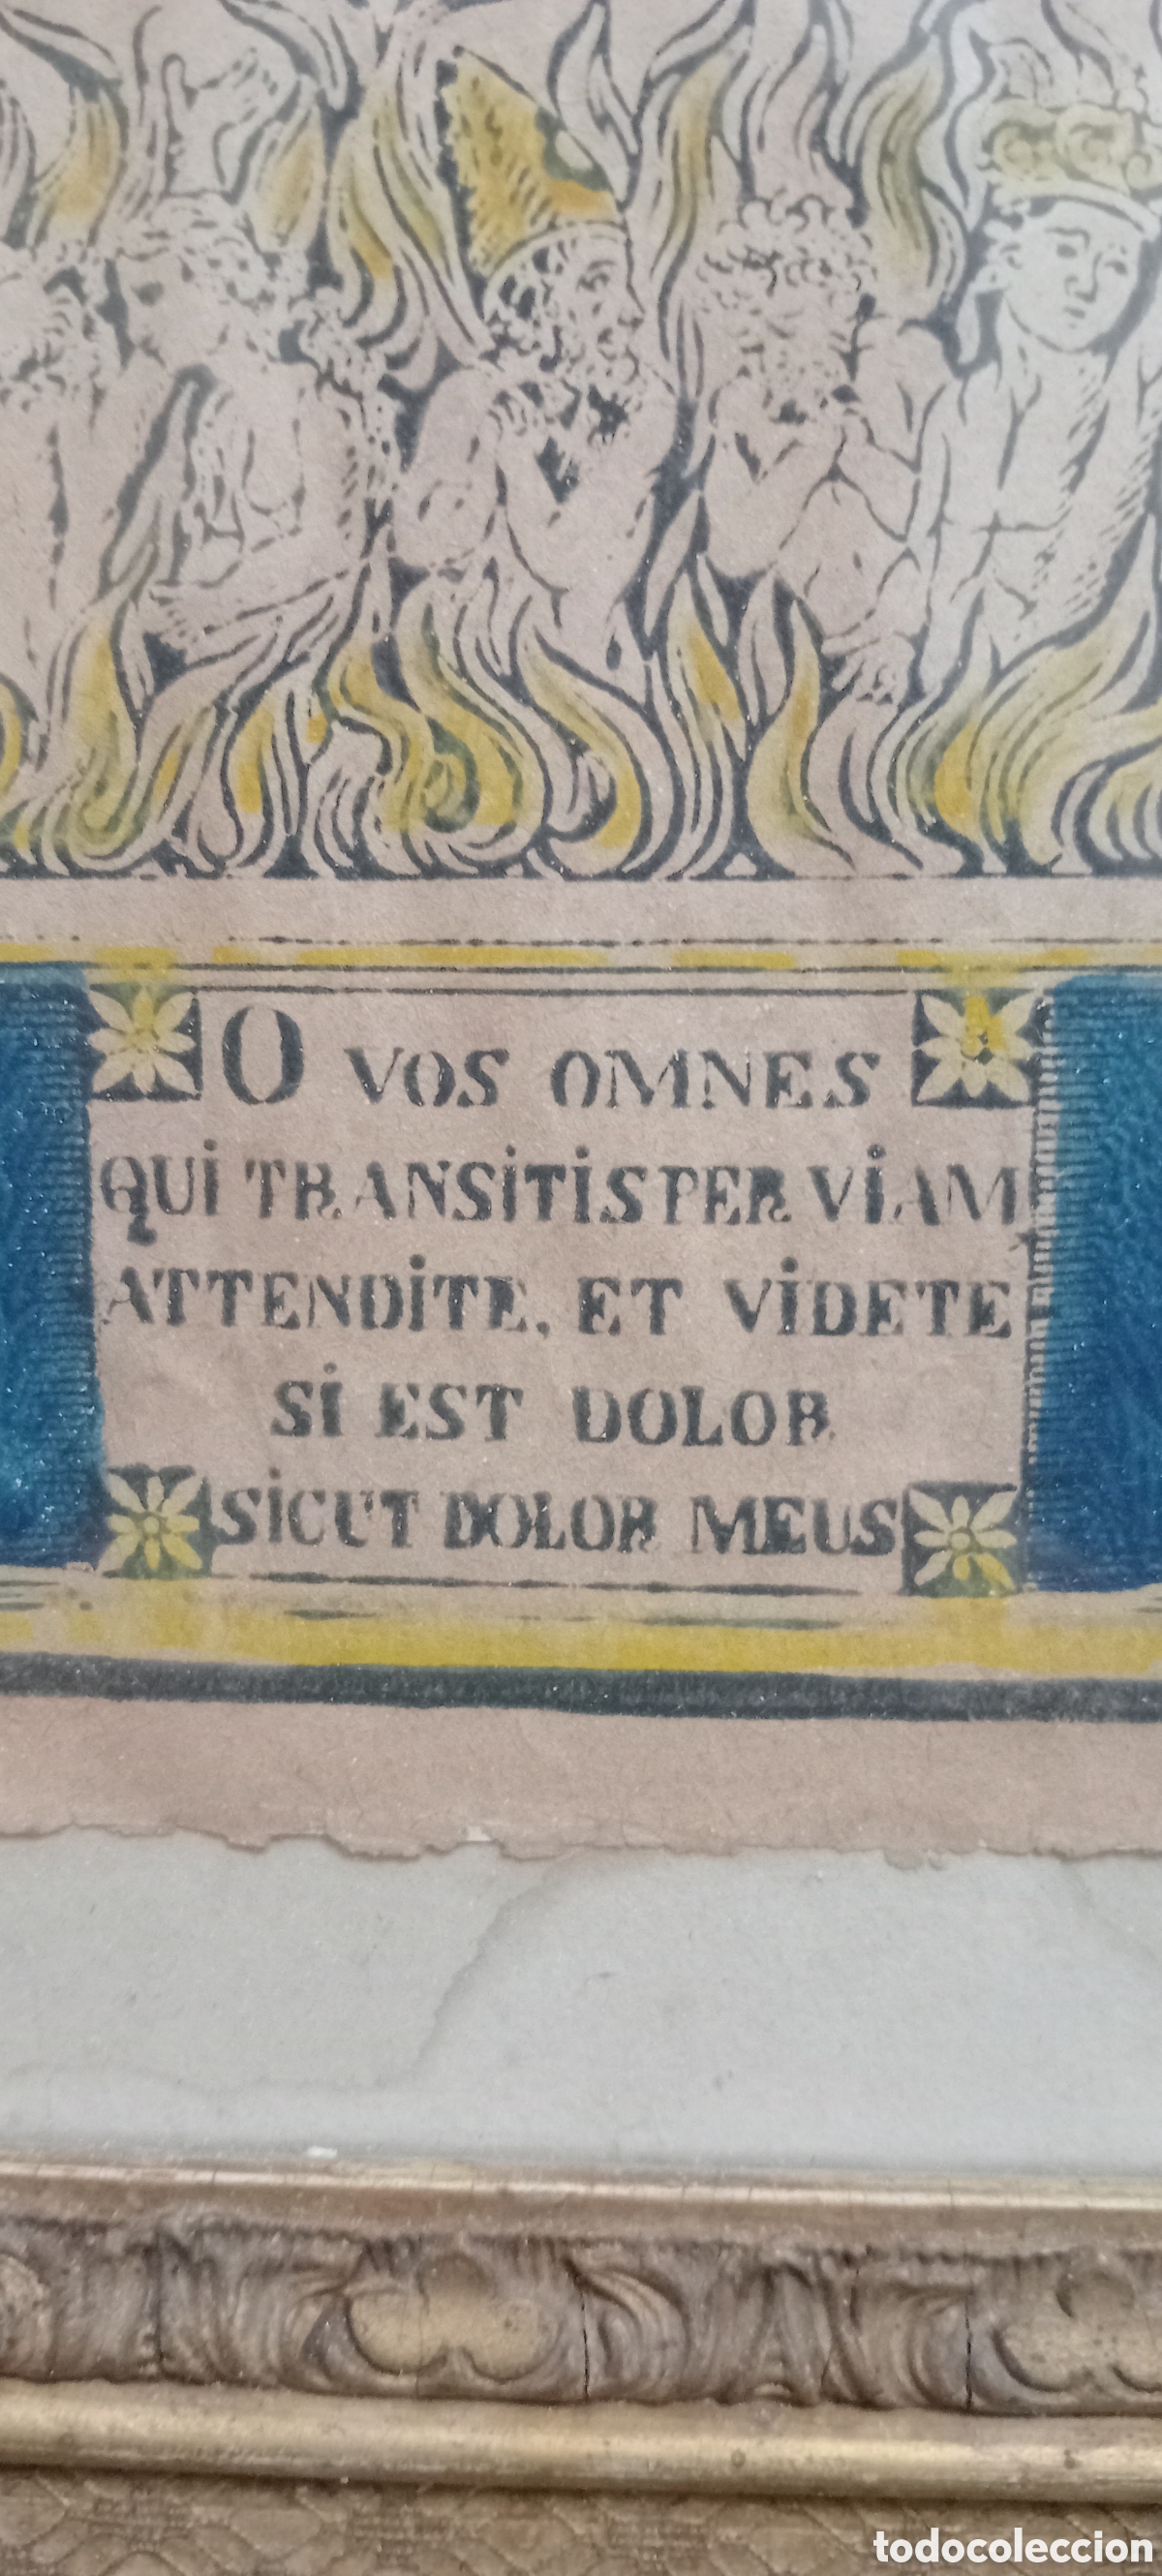 O VOS OMNES
QUI TRANSITIS PER VIAM
ATTENDITE, ET VIDETE
SI EST DOLOR
SICUT DOLOR MEUS
todocoleccion